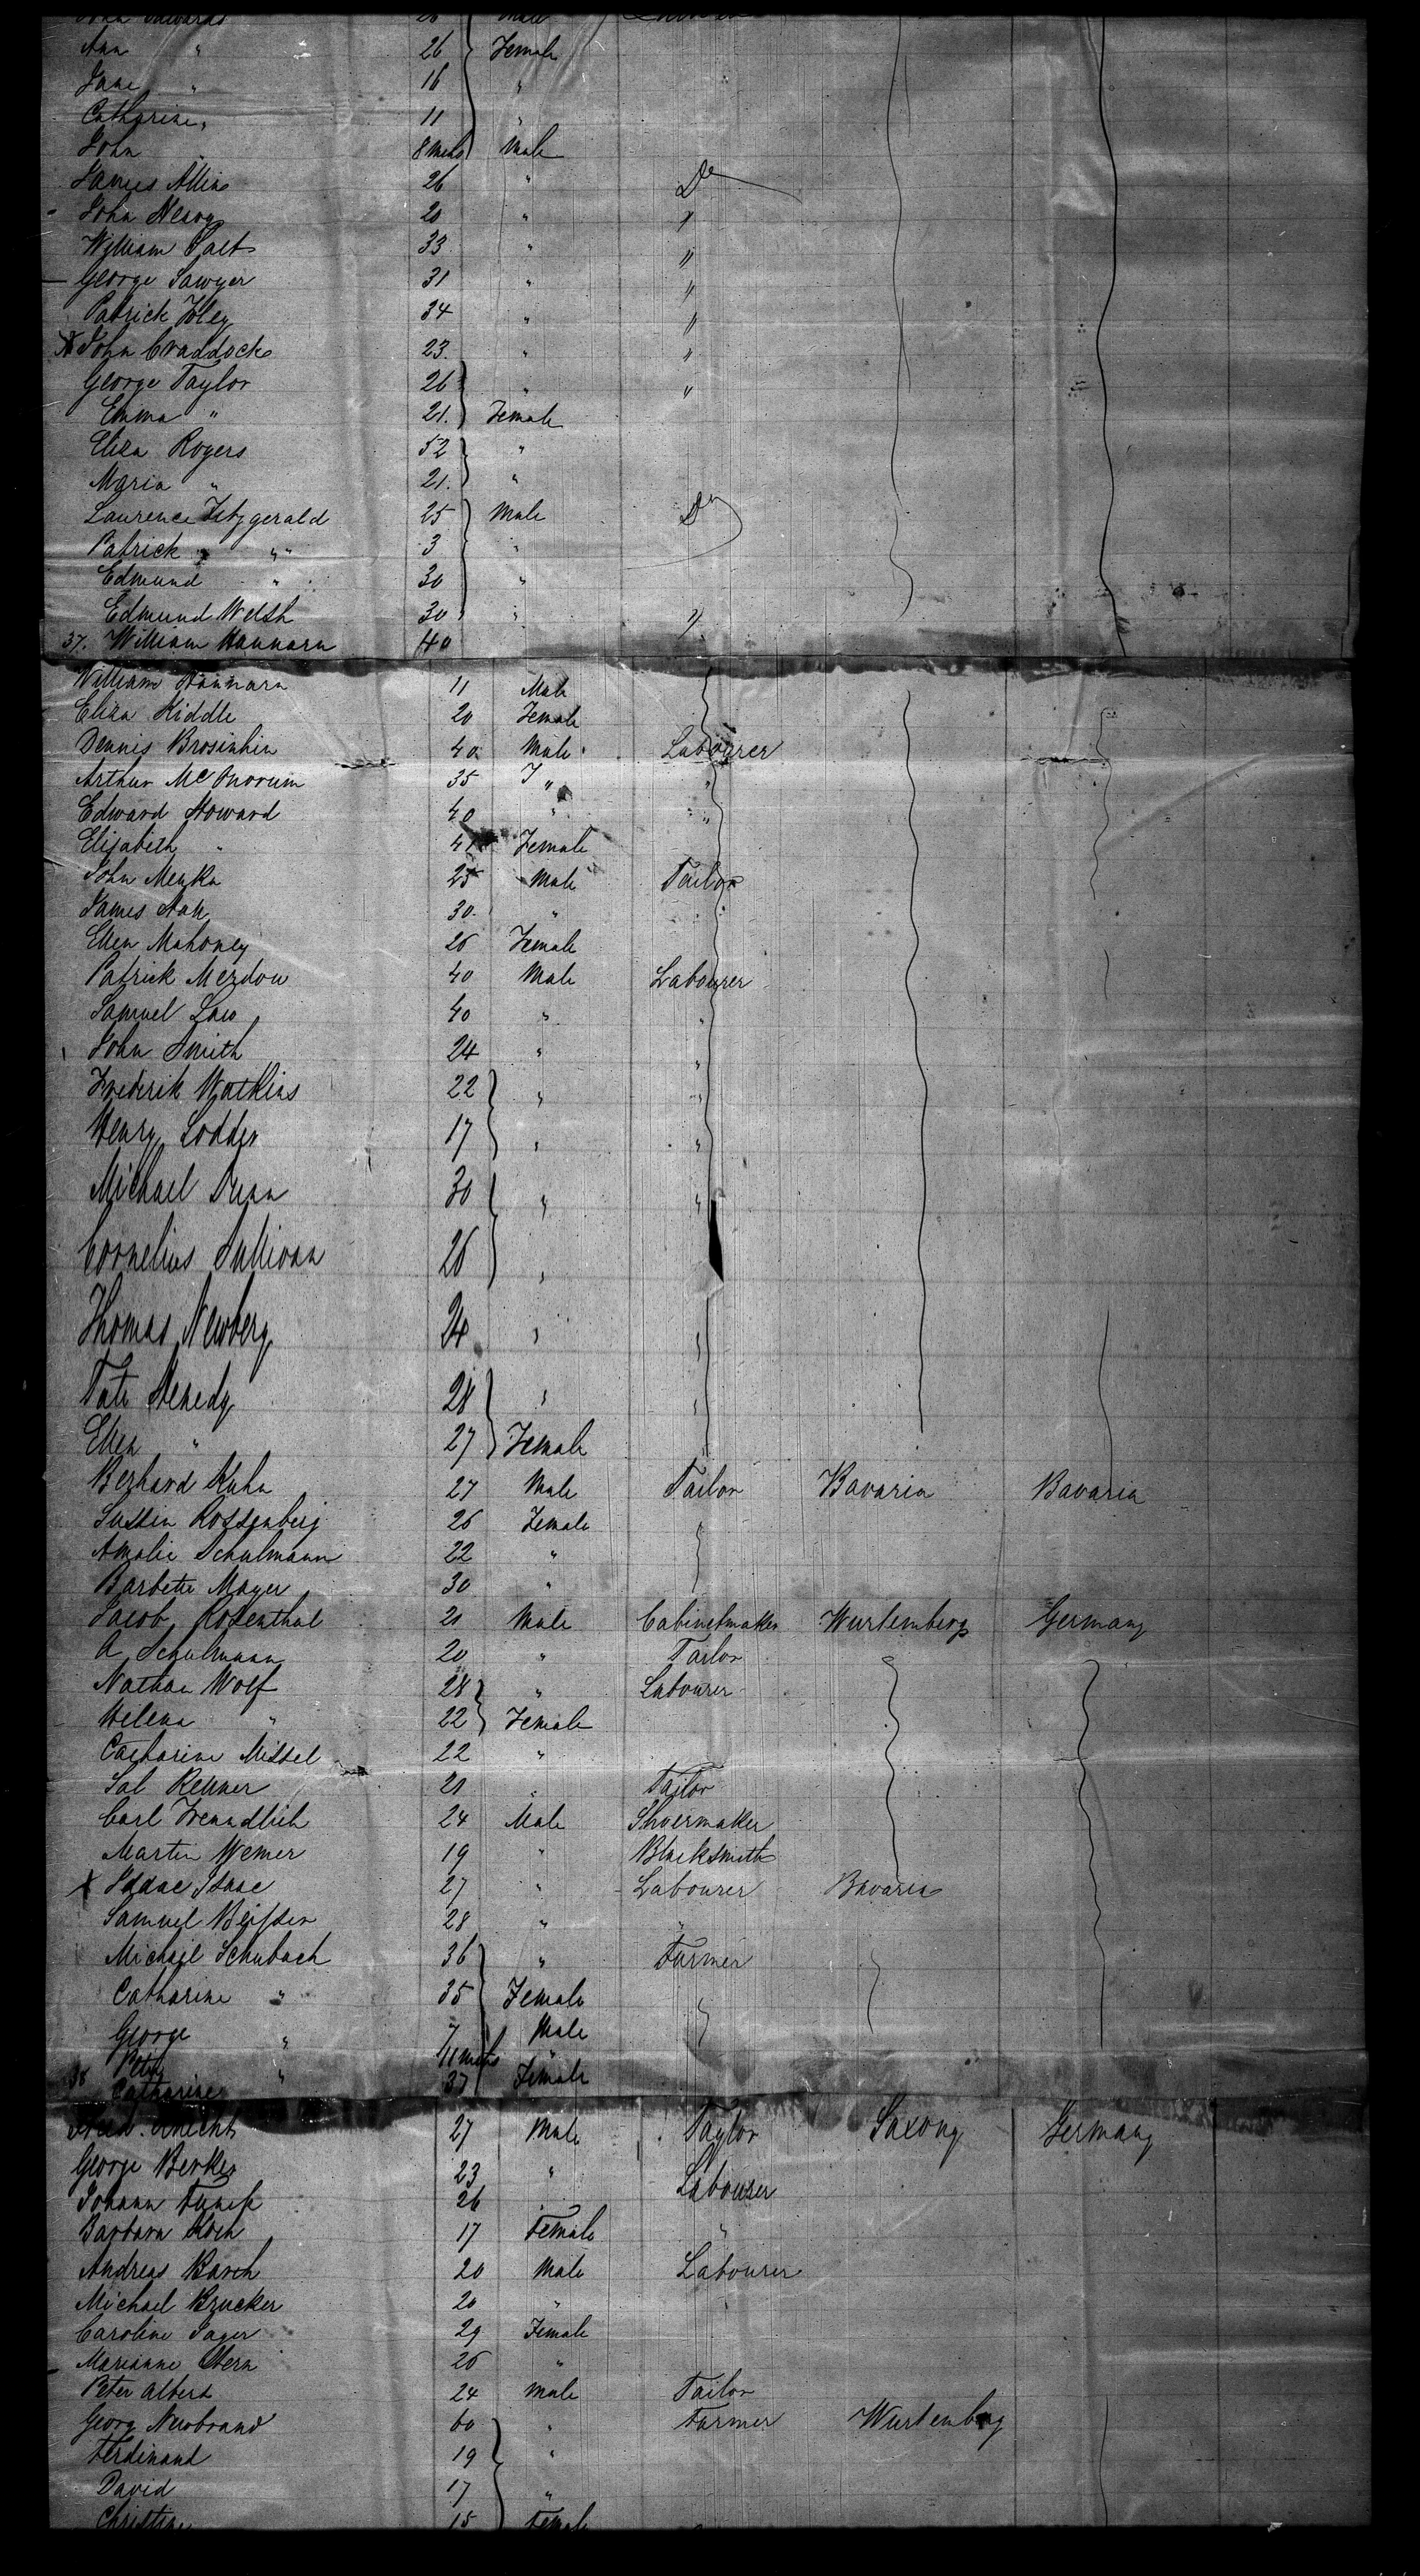 John Edwards 28 Male
Ann " 26 Female
Jane " 16 "
Catharine " 11 "
John 8 mths Male
James Allin 26 " Do
John 20 " "
William Salt 33 " "
George Sawyer 31 " "
Patrick Foley 34 " "
X John Craddock 23. " "
George Taylor 26 " "
Emma " 21. Female
Eliza Rogers 52 "
Maria " 21. "
Laurence Fitzgerald 25 Male Do
Patrick " 3 "
Edmund " 30 "
Edmund Welsh 30 " "
37. William Hannarn 40
William Hannarn 11 Male
Eliza Kiddle 20 Female
Dennis Brosinhin 40 Male Labourer
Arthur 35 " "
Edward Howard 40 " "
Elizabeth " 41 Female
John Menka 25 Male Tailor
James 30. "
Ellen Mahoney 26 Female
Patrick Merdow 40 Male Labourer
Samuel Law 40 " "
John Smith 24 " "
Frederik Watkins 22 " "
Henry Lodder 17 " "
Michael Dunn 30 " "
Cornelius Sullivan 26 "
Thomas Newbery 24 " "
Henedy 28 " "
Ellen " 27 Female
Berhard Kuhn 27 Male Tailor Bavaria Bavaria
Sussin Rossenberg 26 Female
Amalie Schulmann 22 "
Barbette Mayer 30 "
Jacob Rosenthal 21 Male Cabinetmaker Wurtemberg Germany
A Schulmann 20 " Tailor
Nathan Wolf 28 " Labourer
Helena " 22 Female
Catharine Missel 22 "
Sal Renner 21 " Tailor
Carl Freundlich 24 Male Shoemaker
Martin Wemer 19 " Blacksmith
X Isaac Isaac 27 " Labourer Bavaria
Samuel 28 " "
Michail Schubach 36 " Farmer
Catharine " 35 Female
George " 7 Male
Peter " 11 mths "
38 Catharine 37 Female
Knecht 27 Male Taylor Saxony Germany
George Berker 23 " Labourer
Johann 26
Barbara Koch 17 Female "
Andreas Barch 20 Male Labourer
Michael Brucker 20 "
Caroline Sager 29 Female
Marianne Stern 26 "
Peter Albert 24 Male Tailor
Georg Neubrand 60 " Farmer Wurtemberg
Ferdinand 19 "
David 17 "
Christine 15 Female